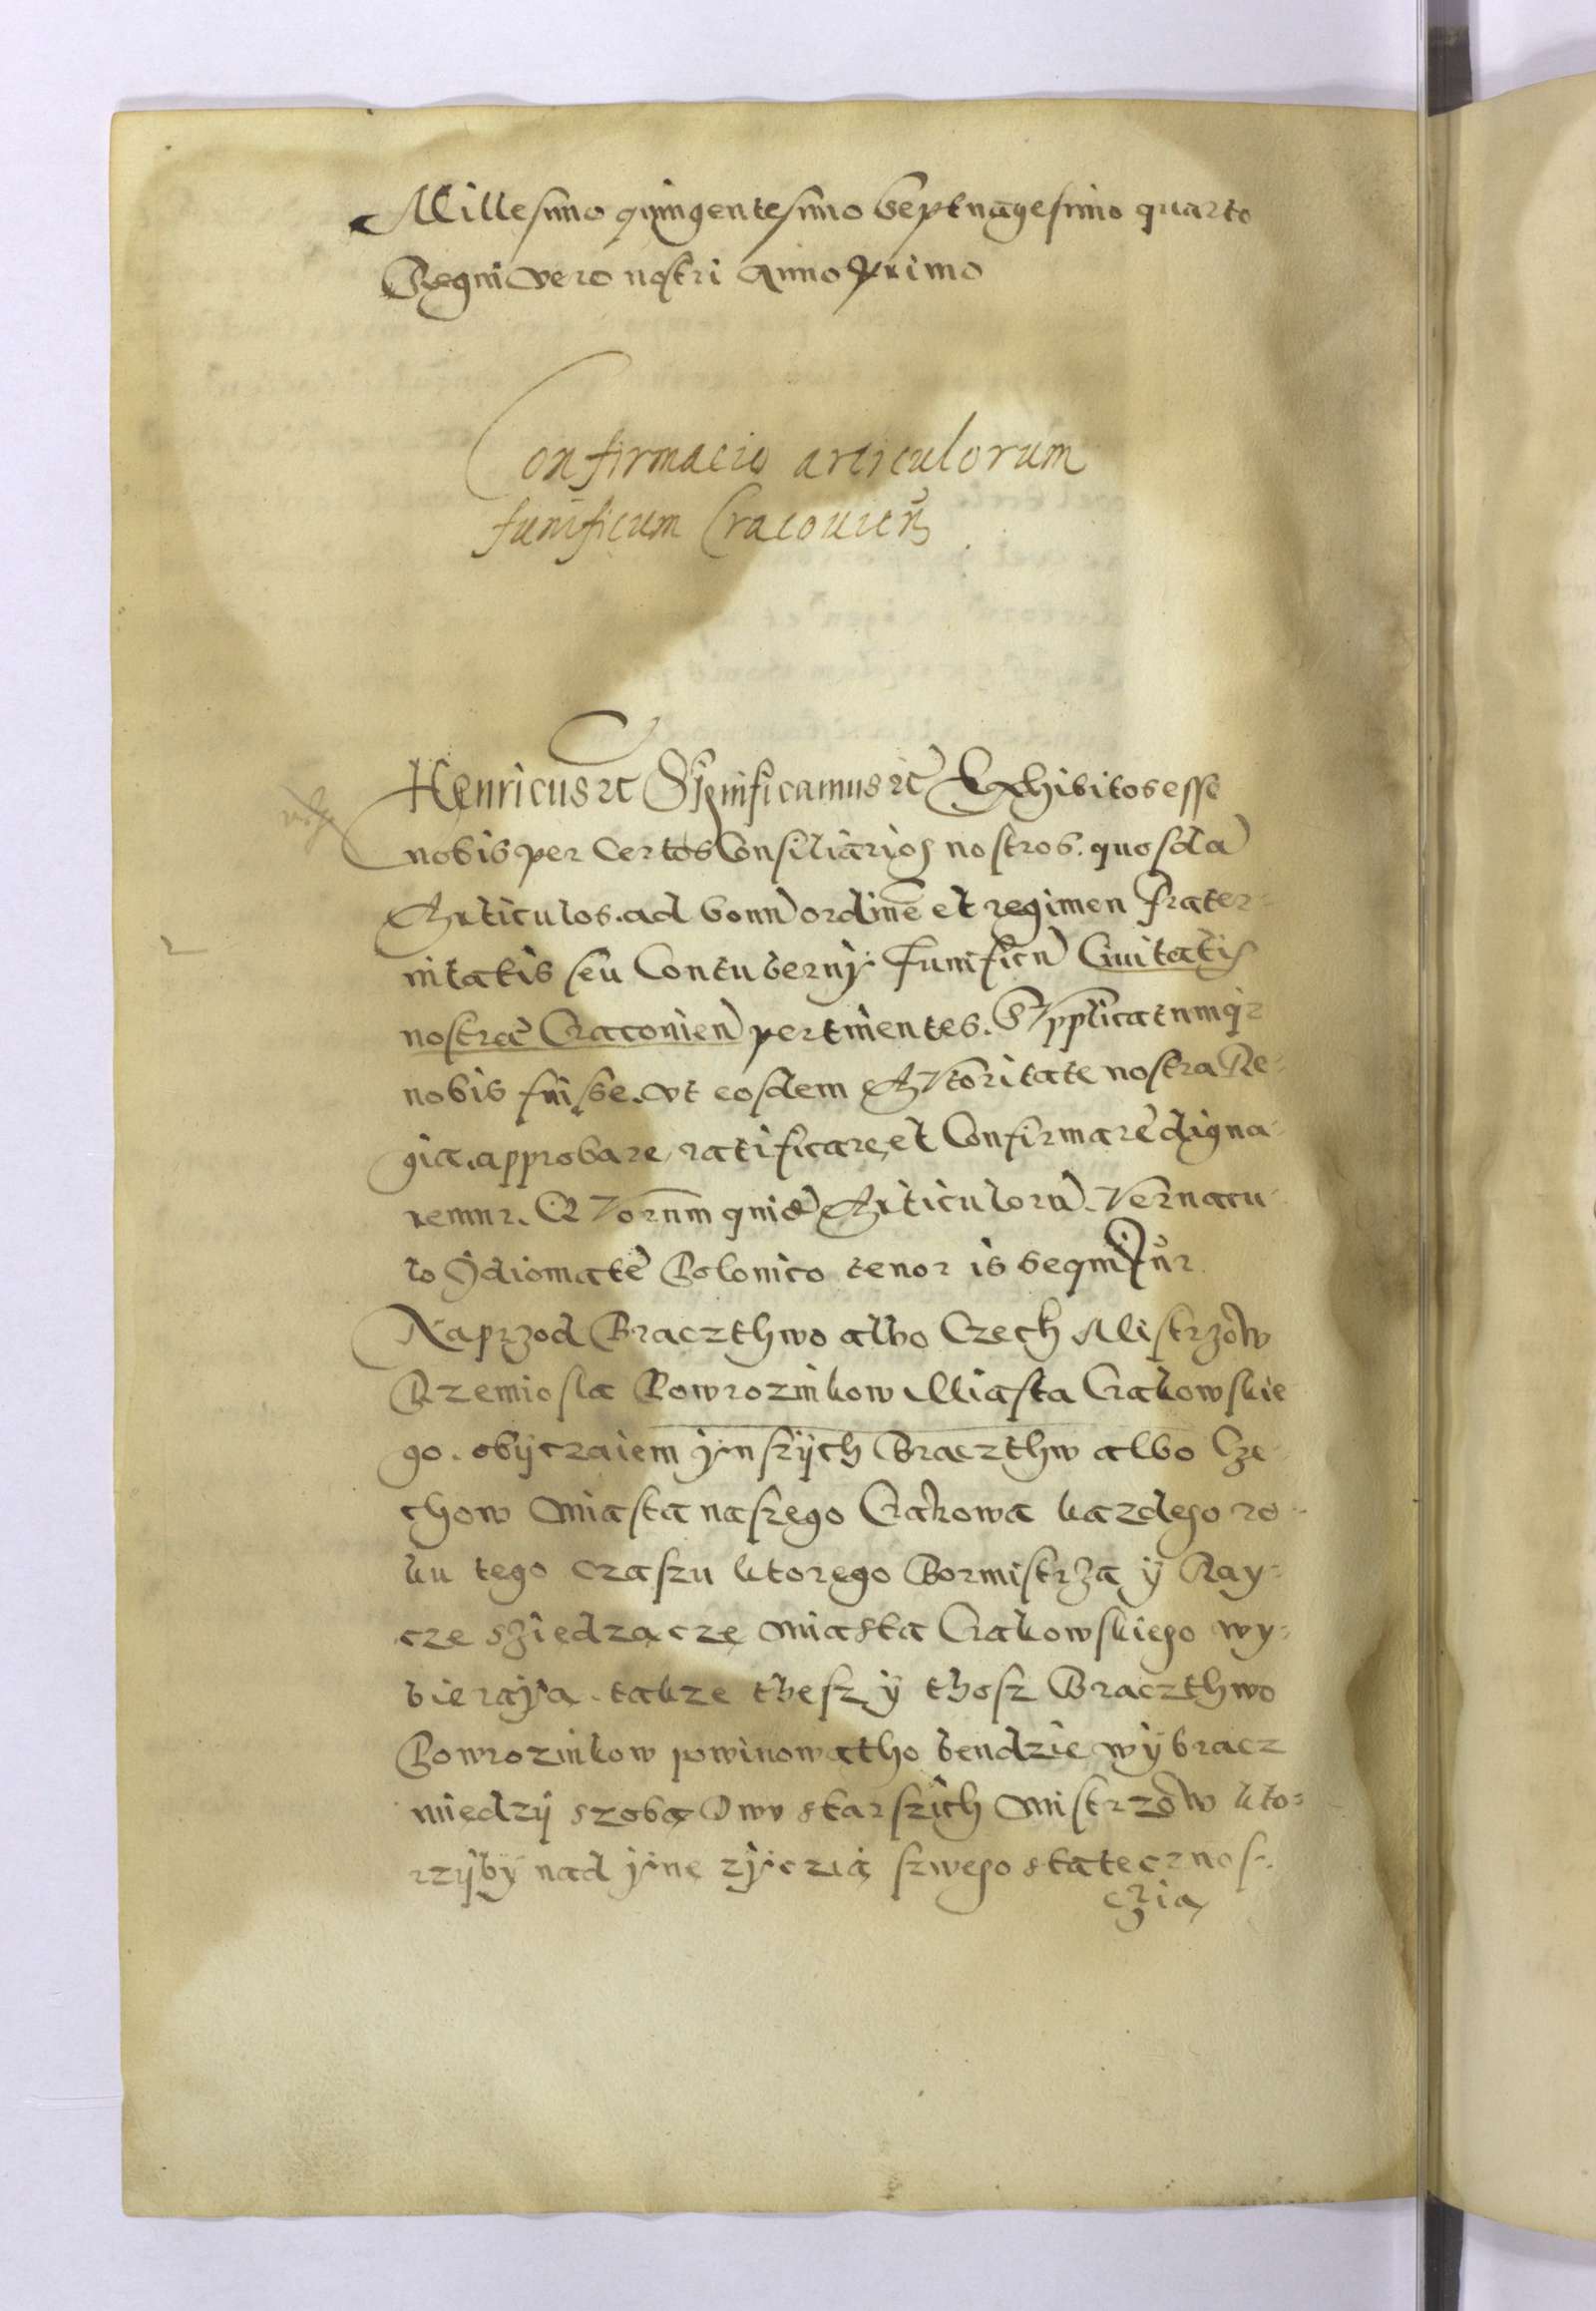 Millesimo quingentesimo Septuagesimo quarto
Regni vero nostri Anno primo
Confirmacio articulorum
funificum Cracovien̄
Henricus ꝛc Significamus ꝛc Exhibitos esse
nobis per Certos Consiliarios nostros. quosdā
Articulos. ad bonū ordinē et regimen frater-
nitatis seu Contubernÿ Funificū Ciuitatis
nostræ Cracouien̄ pertinentes. Supplicatumqꝫ
nobis fuisse. vt eosdem Authoritate nostra Re-
gia. approbare, ratificare, et Confirmare digna-
remur. Quorum quidē Articulorū. Vernacu-
lo Ydiomate Polonico tenor is sequitur.
Naprzod Braczthwo albo Czech Mistrzow
Rzemiosla Powroznikow Miasta Crakowskie
go. obÿczaiem ÿnszÿch Braczthw albo Cze-
chow Miasta naszego Crakowa kazdego ro-
ku tego czaszu ktorego Bormistrza ÿ Ray-
cze sziedzącze Miasta Crakowskiego wy-
bieraÿą. takze thesz ÿ thosz Braczthwo
Powroznikow powinowatho bendzie wÿbracz
miedzÿ szobą Dwu starszich Mistrzow kto-
rzÿbÿ nad ÿne zÿczią szwego statecznos-
czią